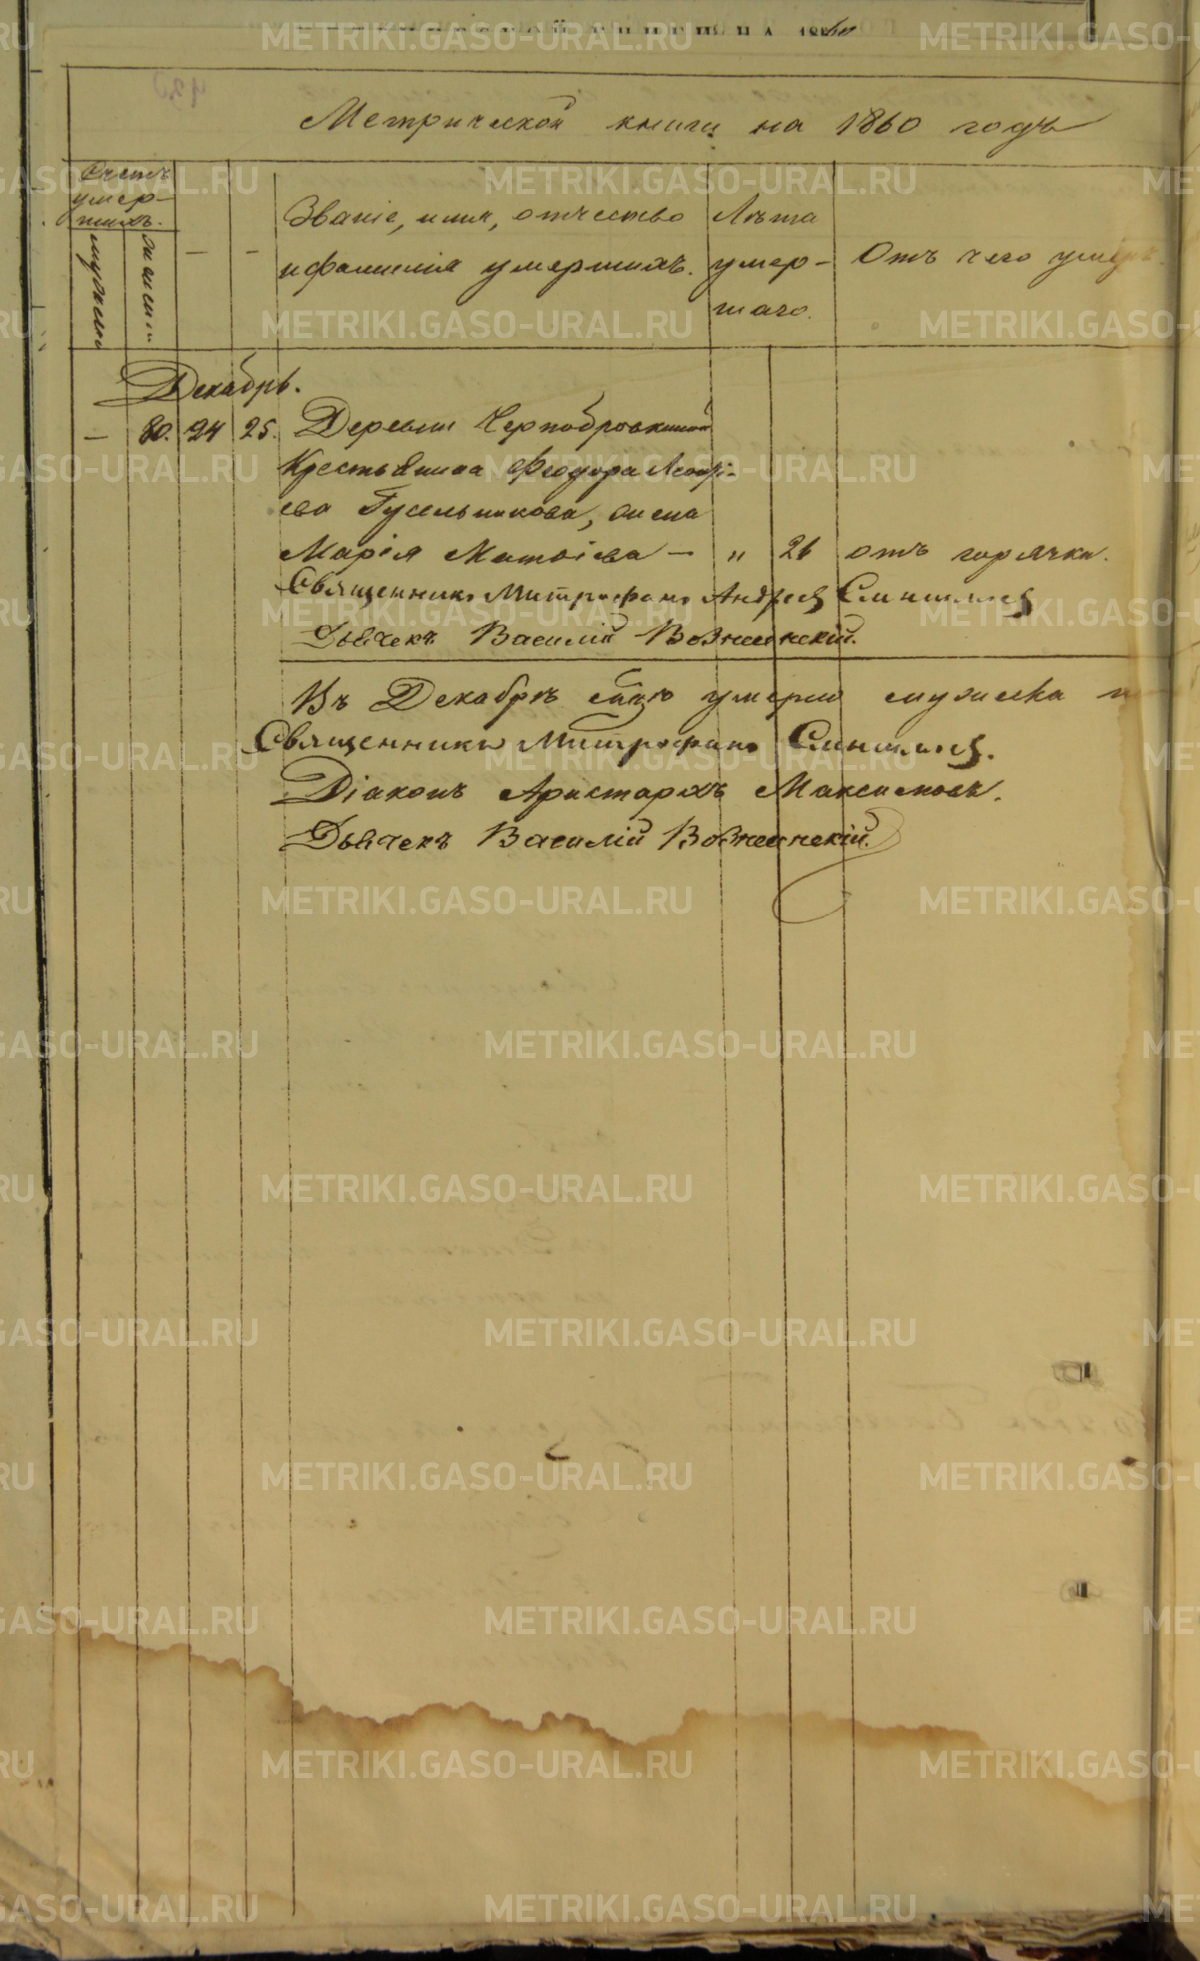 Метрической книги на 1860 годъ
Счетъ
умер-
шихъ.
мужеска
женска
Званіе, имя, отчество
и фамилія умершихъ.
Лѣта
умер-
шаго.
Отъ чего умеръ
Декабрь.
— 80. 24 25. Деревни Чернобровкиной
Крестьянина Феодора
ева Гусельникова, жена
Марія Матвіева — „ 26 отъ горячки.
Священникъ Митрофанъ Андреев
Дьячекъ Василій Вознесенскій.
Въ Декабрѣ умерло мужеска
Священникъ Митрофанъ
Діаконъ Аристархъ Максимовъ.
Дьячекъ Василій Вознесенскій.
METRIKI.GASO-URAL.RU